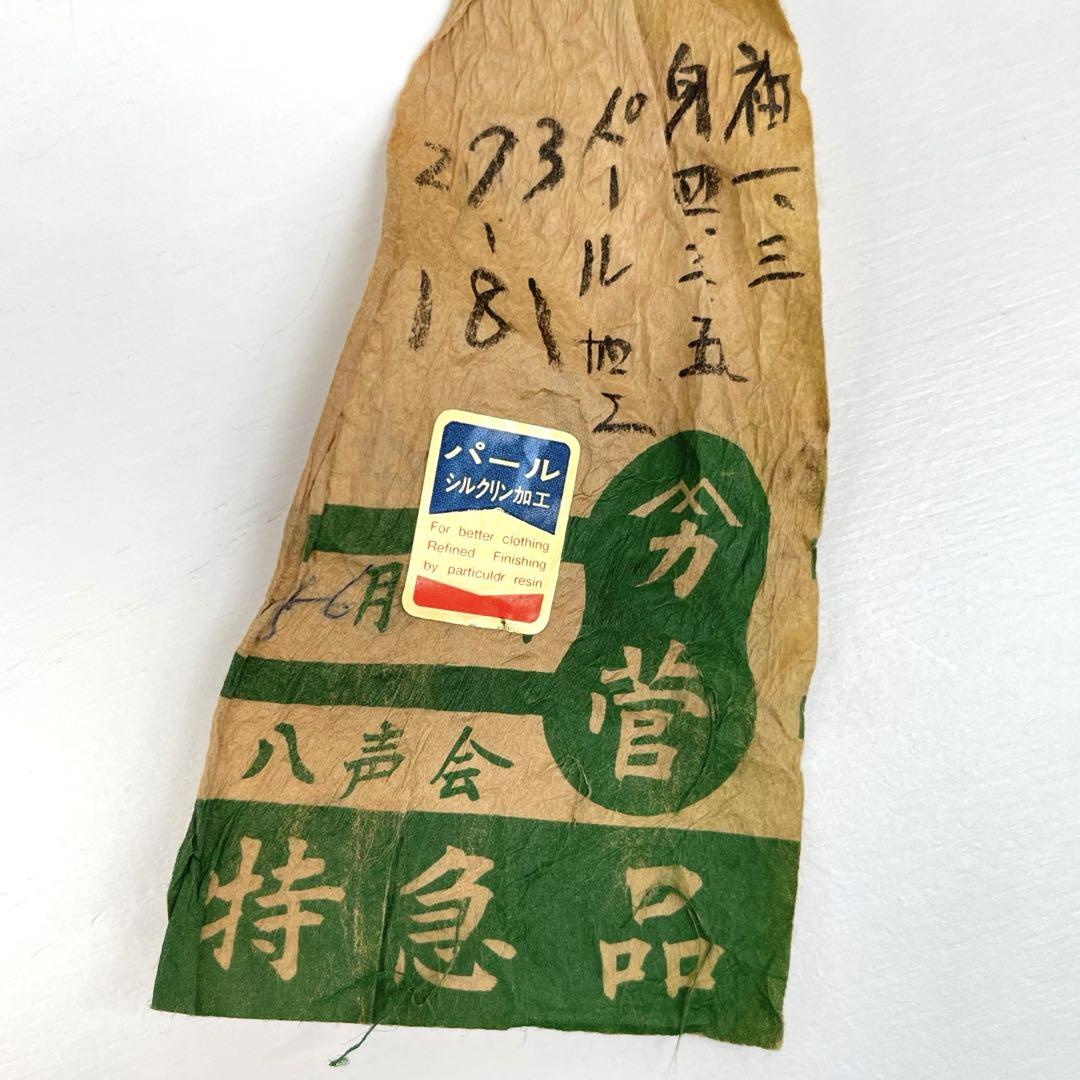 袖一.三
身四.三.五
パール加工
273
181
パール
シルクリン加工
For better clothing
Refined Finishing
by particuldr resin
月
力
菅
八声会
特急品